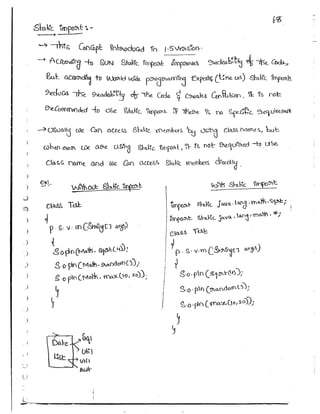 68
Static import :-
→ This Concept Introduced in 1.5 version.
→ According to SUN Static Import Improves Readability of the Code,
But according to World wide programming Experts (like us) Static Imports
Reduces the Readability of the Code & Creates Confusion, it is not
Recommended to use Static Import If there is no Specific Requirement
→ Usually we Can access Static members by using Class names, but
when ever we are using Static Import, it is not Required to use
Class name and we Can access Static members directly.
Without Static Import
class Test
{
p. s. v. m (String[] args)
{
S.o.pln(Math. sqrt(4));
S.o.pln(Math. random());
S.o.pln(Math. max(10, 20));
}
}
With Static Import
import static java. lang. math. sqrt;
import static java. lang. math. *;
class Test
{
p. s. v. m (String[] args)
{
S.o.pln(sqrt(4));
S.o.pln(random());
S.o.pln(max(10,20));
}
}
Date
List
Sql
Util
Util
Awt